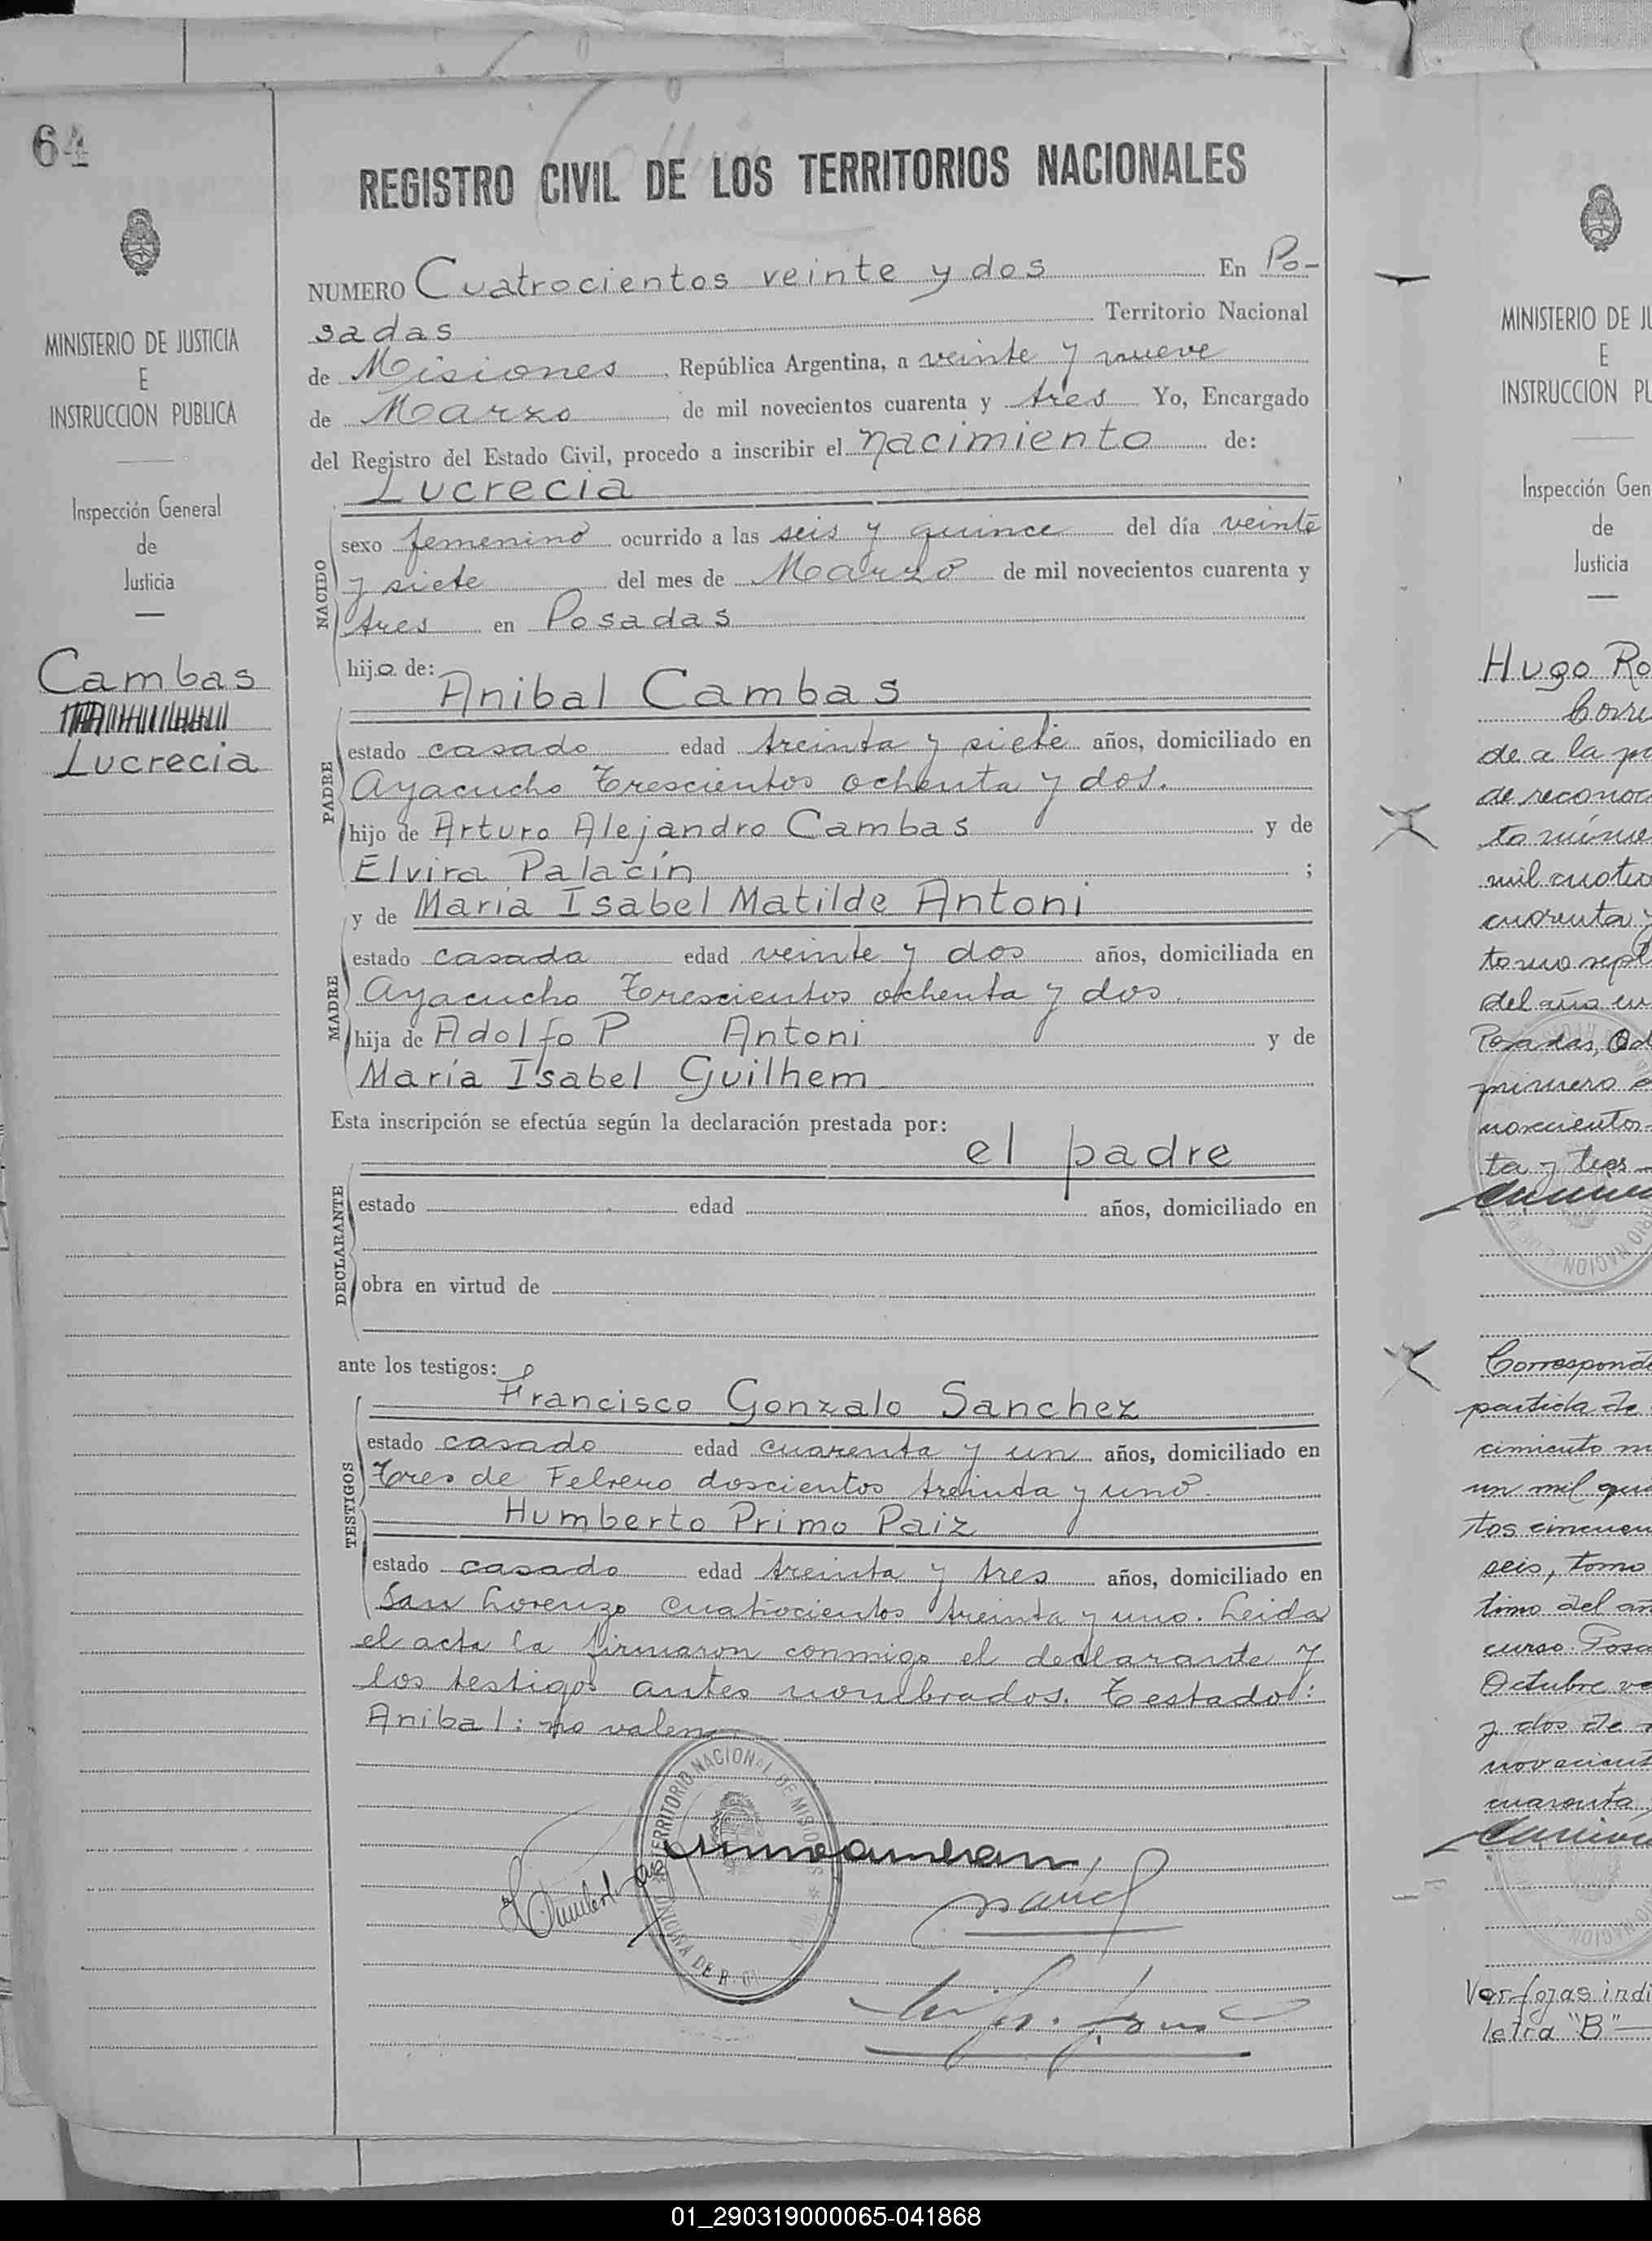 64
MINISTERIO DE JUSTICIA
E
INSTRUCCION PUBLICA
Inspección General
de
Justicia
Cambas
Lucrecia
REGISTRO CIVIL DE LOS TERRITORIOS NACIONALES
NUMERO Cuatrocientos veinte y dos En Po-
sadas Territorio Nacional
de Misiones, República Argentina, a veinte y nueve
de Marzo de mil novecientos cuarenta y tres Yo, Encargado
del Registro del Estado Civil, procedo a inscribir el nacimiento de:
Lucrecia
NACIDO
sexo femenino ocurrido a las seis y quince del día veinte
y siete del mes de Marzo de mil novecientos cuarenta y
tres en Posadas
hija de:
Anibal Cambas
PADRE
estado casado edad treinta y siete años, domiciliado en
Ayacucho trescientos ochenta y dos.
hijo de Arturo Alejandro Cambas y de
Elvira Palacín ;
y de María Isabel Matilde Antoni
MADRE
estado casada edad veinte y dos años, domiciliada en
Ayacucho trescientos ochenta y dos.
hija de Adolfo P Antoni y de
María Isabel Guilhem
Esta inscripción se efectúa según la declaración prestada por:
el padre
DECLARANTE
estado edad años, domiciliado en
obra en virtud de
ante los testigos:
Francisco Gonzalo Sanchez
TESTIGOS
estado casado edad cuarenta y un años, domiciliado en
Tres de Febrero doscientos treinta y uno.
Humberto Primo Paiz
estado casado edad treinta y tres años, domiciliado en
San Lorenzo cuatrocientos treinta y uno. Leida
el acta la firmaron conmigo el declarante y
los testigos antes nombrados. Testado:
Anibal: no valen
TERRITORIO NACIONAL DE MISIONES
DE R.
MINISTERIO DE JU
E
INSTRUCCION PU
Inspección Gen
de
Justicia
Hugo Ro
Corre
de a la pa
de reconoc
to núme
mil cuatro
cuarenta y
tomo sept
del año en
Posadas, Oc
primero
novecientos
ta y tres
Corresponde
partida de
cimiento
un mil qui
tos cincuen
seis, tomo
timo del añ
curso. Posa
Octubre ve
y dos de
novecient
cuarenta
Ver fojas indi
letra "B"
01_290319000065-041868